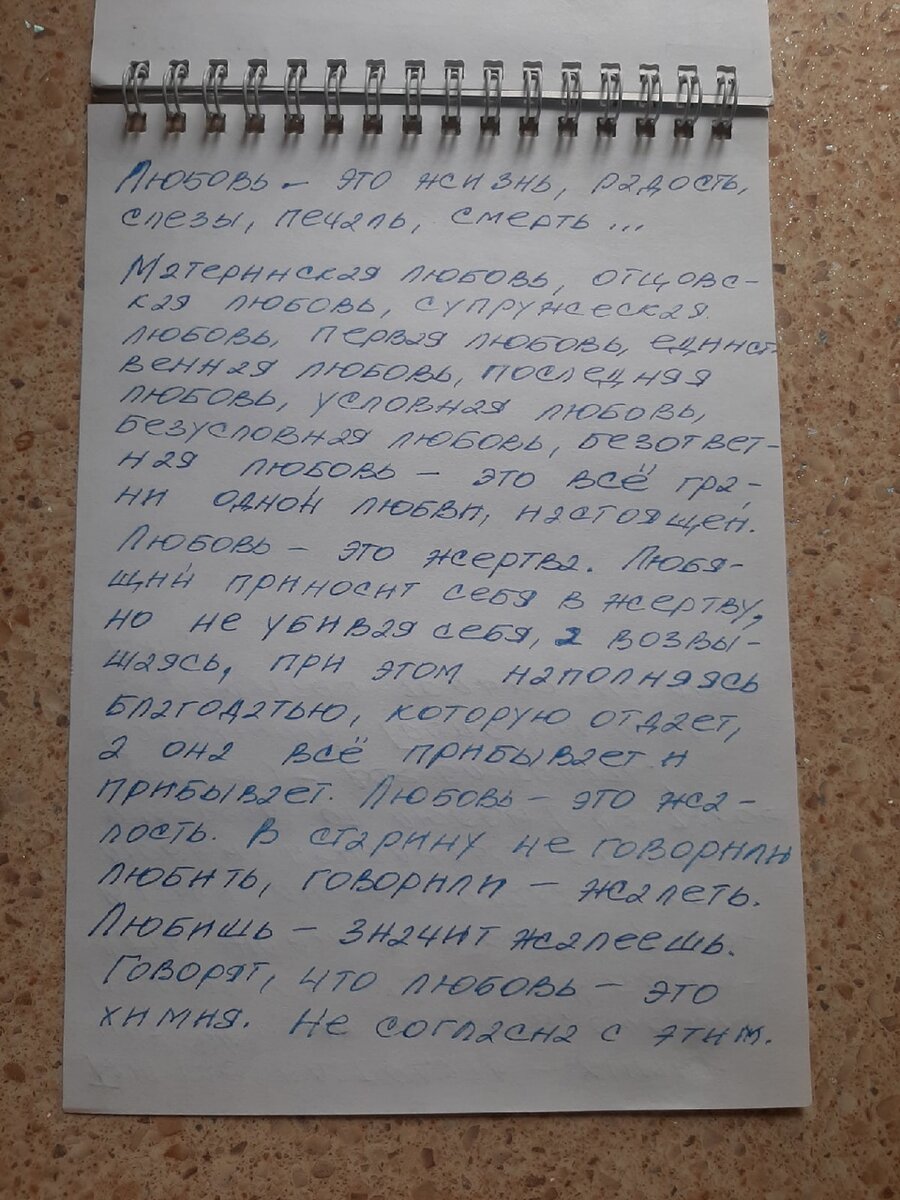 Любовь – это жизнь, радость,
слезы, печаль, смерть...
Материнская любовь, отцовс-
кая любовь, супружеская
любовь, первая любовь, единст-
венная любовь, последняя
любовь, условная любовь,
безусловная любовь, безответ-
ная любовь – это всё гра-
ни одной любви, настоящей.
Любовь – это жертва. Любя-
щий приносит себя в жертву,
но не убивая себя, а возвы-
шаясь, при этом наполняясь
благодатью, которую отдает,
а она всё прибывает и
прибывает. Любовь – это жа-
лость. В старину не говорили
любить, говорили – жалеть.
Любишь – значит жалеешь.
Говорят, что любовь – это
химия. Не согласна с этим.